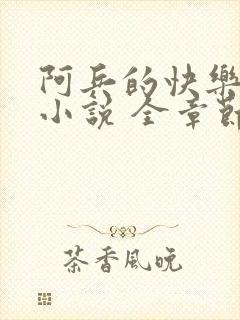 阿兵的快樂
小說 全章節
茶香風晚